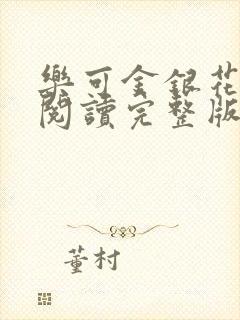 樂可金銀花
閱讀完整版
董村